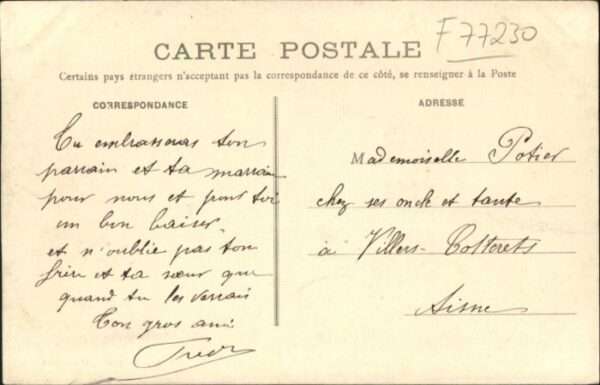 F 77230
CARTE POSTALE
Certains pays étrangers n'acceptant pas la correspondance de ce côté, se renseigner à la Poste
CORRESPONDANCE
Tu embrasseras ton
parrain et ta marraine
pour nous et pour toi
un bon baiser.
et n'oublie pas ton
frère et ta sœur que
quand tu les verrais
Ton gros ami
ADRESSE
Mademoiselle Potier
chez ses oncle et tante
à Villers-Cotterets
Aisne